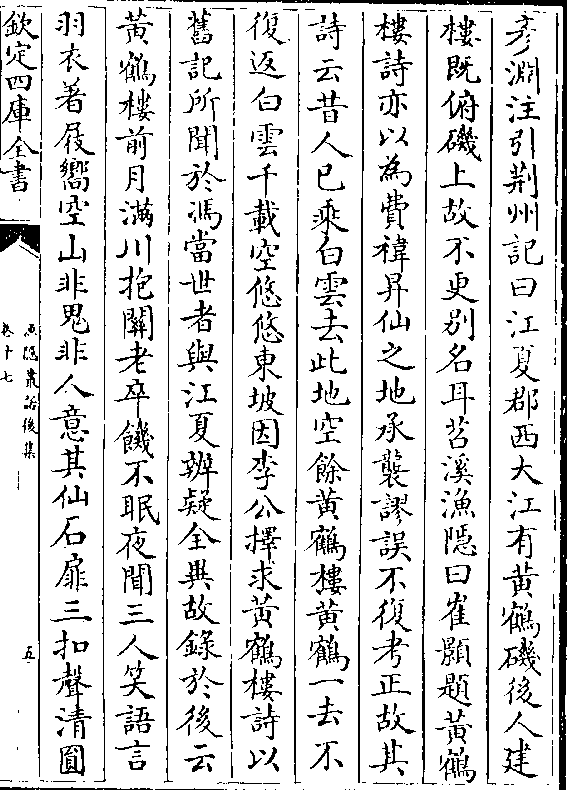 彦淵注引荆州記曰江夏郡西大江有黄鶴磯後人建
樓既俯磯上故不更别名耳苕溪漁隠曰崔顥題黄鶴
樓詩亦以為費禕昇仙之地承襲謬誤不復考正故其
詩云昔人已乘白雲去此地空餘黄鶴樓黄鶴一去不
復返白雲千載空悠悠東坡因李公擇求黄鶴樓詩以
舊記所聞於馮當世者與江夏辨疑全異故錄於後云
黄鶴樓前月滿川抱闗老卒饑不眠夜聞三人笑語言
羽衣著屐嚮空山非鬼非人意其仙石扉三扣聲清圎
欽定四庫全書
漁隠叢話後集
卷十七
五